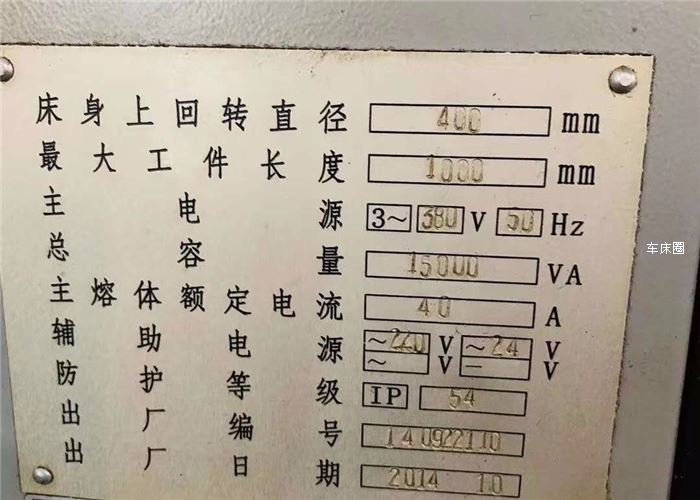 床身上回转直径 400 mm
最大工件长度 1000 mm
主电源 3~ 380 V 50 Hz
总容量 15000 VA
主熔体额定电流 40 A
辅助电源 ~220 V ~24 V
~ V — V
防护等级 IP 54
出厂编号 140922110
出厂日期 2014 10
车床圈